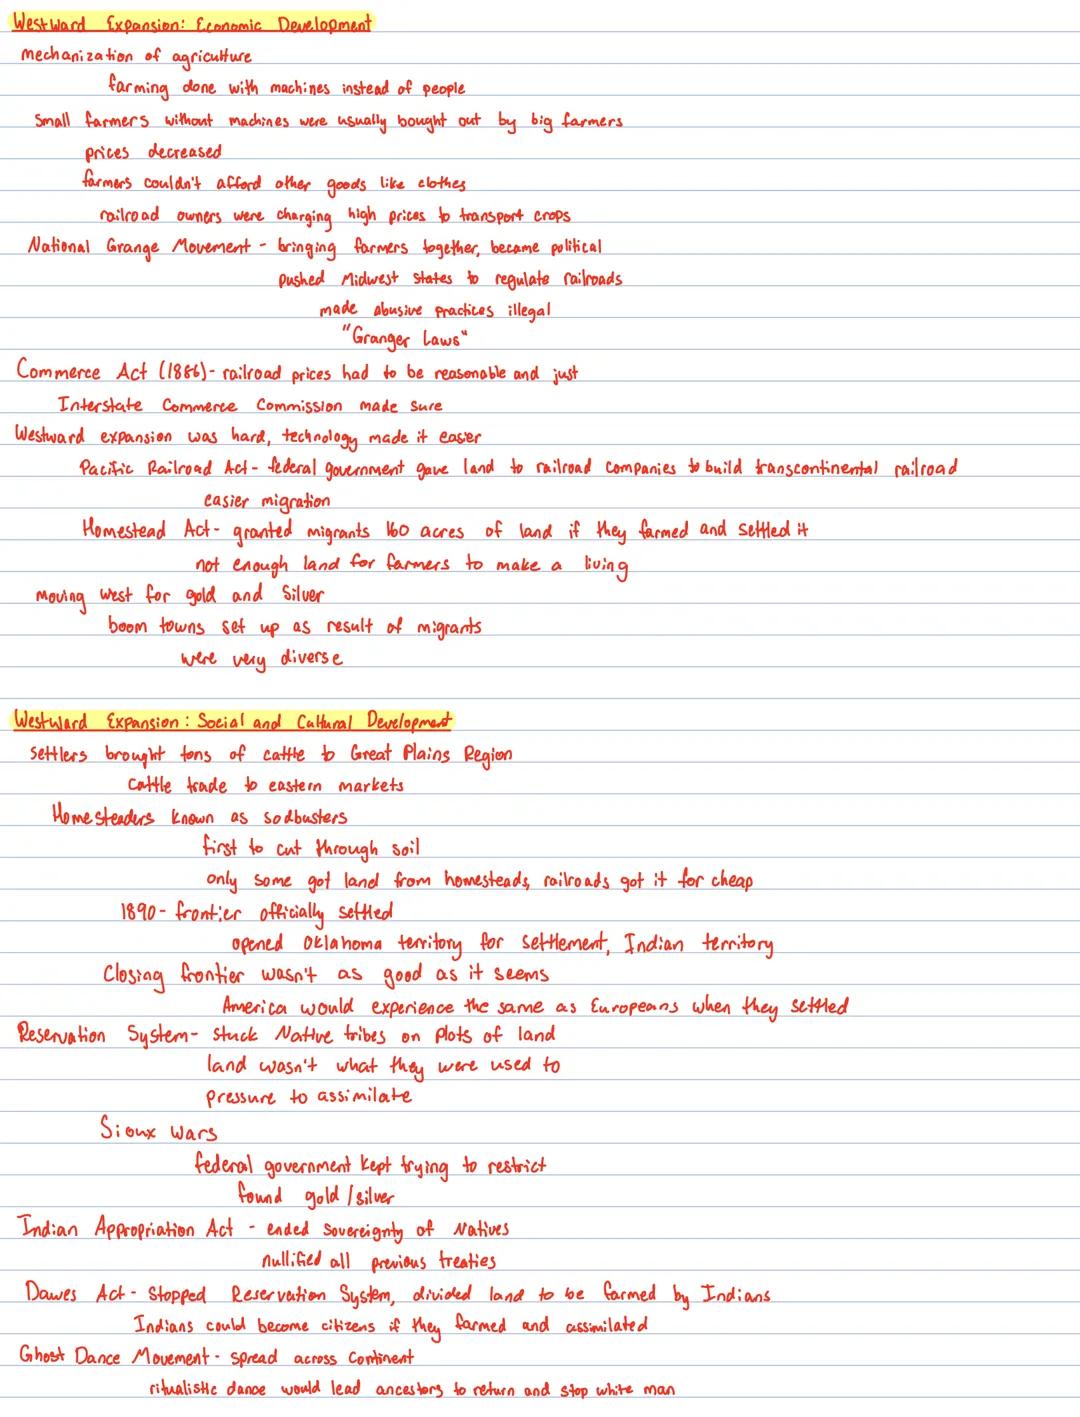 Westward Expansion: Economic Development
mechanization of agriculture
farming done with machines instead of people
Small farmers without machines were usually bought out by big farmers
prices decreased
farmers couldn't afford other goods like clothes
railroad owners were charging high prices to transport crops
National Grange Movement - bringing farmers together, became political
pushed Midwest states to regulate railroads
made abusive practices illegal
"Granger Laws"
Commerce Act (1886)- railroad prices had to be reasonable and just
Interstate Commerce Commission made sure
Westward expansion was hard, technology made it easier
Pacific Railroad Act- federal government gave land to railroad companies to build transcontinental railroad
easier migration
Homestead Act- granted migrants 160 acres of land if they farmed and settled it
not enough land for farmers to make a living
moving west for gold and silver
boom towns set up as result of migrants
were very diverse
Westward Expansion: Social and Cultural Development
settlers brought tons of cattle to Great Plains Region
cattle trade to eastern markets
Homesteaders known as sodbusters
first to cut through soil
only some got land from homesteads, railroads got it for cheap
1890- frontier officially settled
opened Oklahoma territory for settlement, Indian territory
Closing frontier wasn't as good as it seems
America would experience the same as Europeans when they settled
Reservation System- stuck Native tribes on plots of land
land wasn't what they were used to
pressure to assimilate
Sioux Wars
federal government kept trying to restrict
found gold/silver
Indian Appropriation Act - ended sovereignty of Natives
nullified all previous treaties
Dawes Act- Stopped Reservation System, divided land to be farmed by Indians
Indians could become citizens if they farmed and assimilated
Ghost Dance Movement- spread across continent
ritualistic dance would lead ancestors to return and stop white man